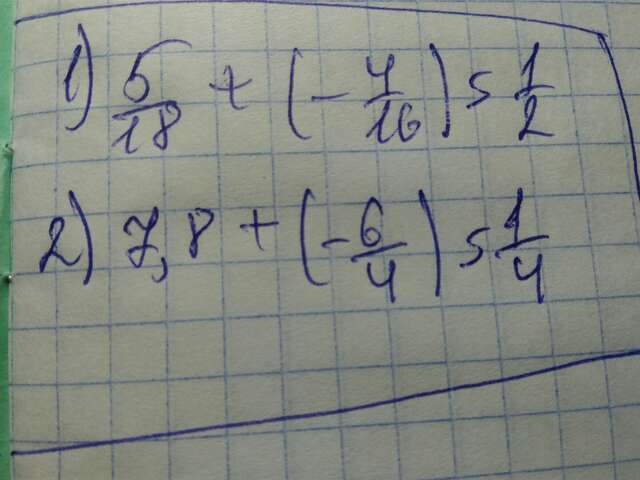 1) 5/18 + (-4/16) = 1/2
2) 7,8 + (-6/4) = 1/4